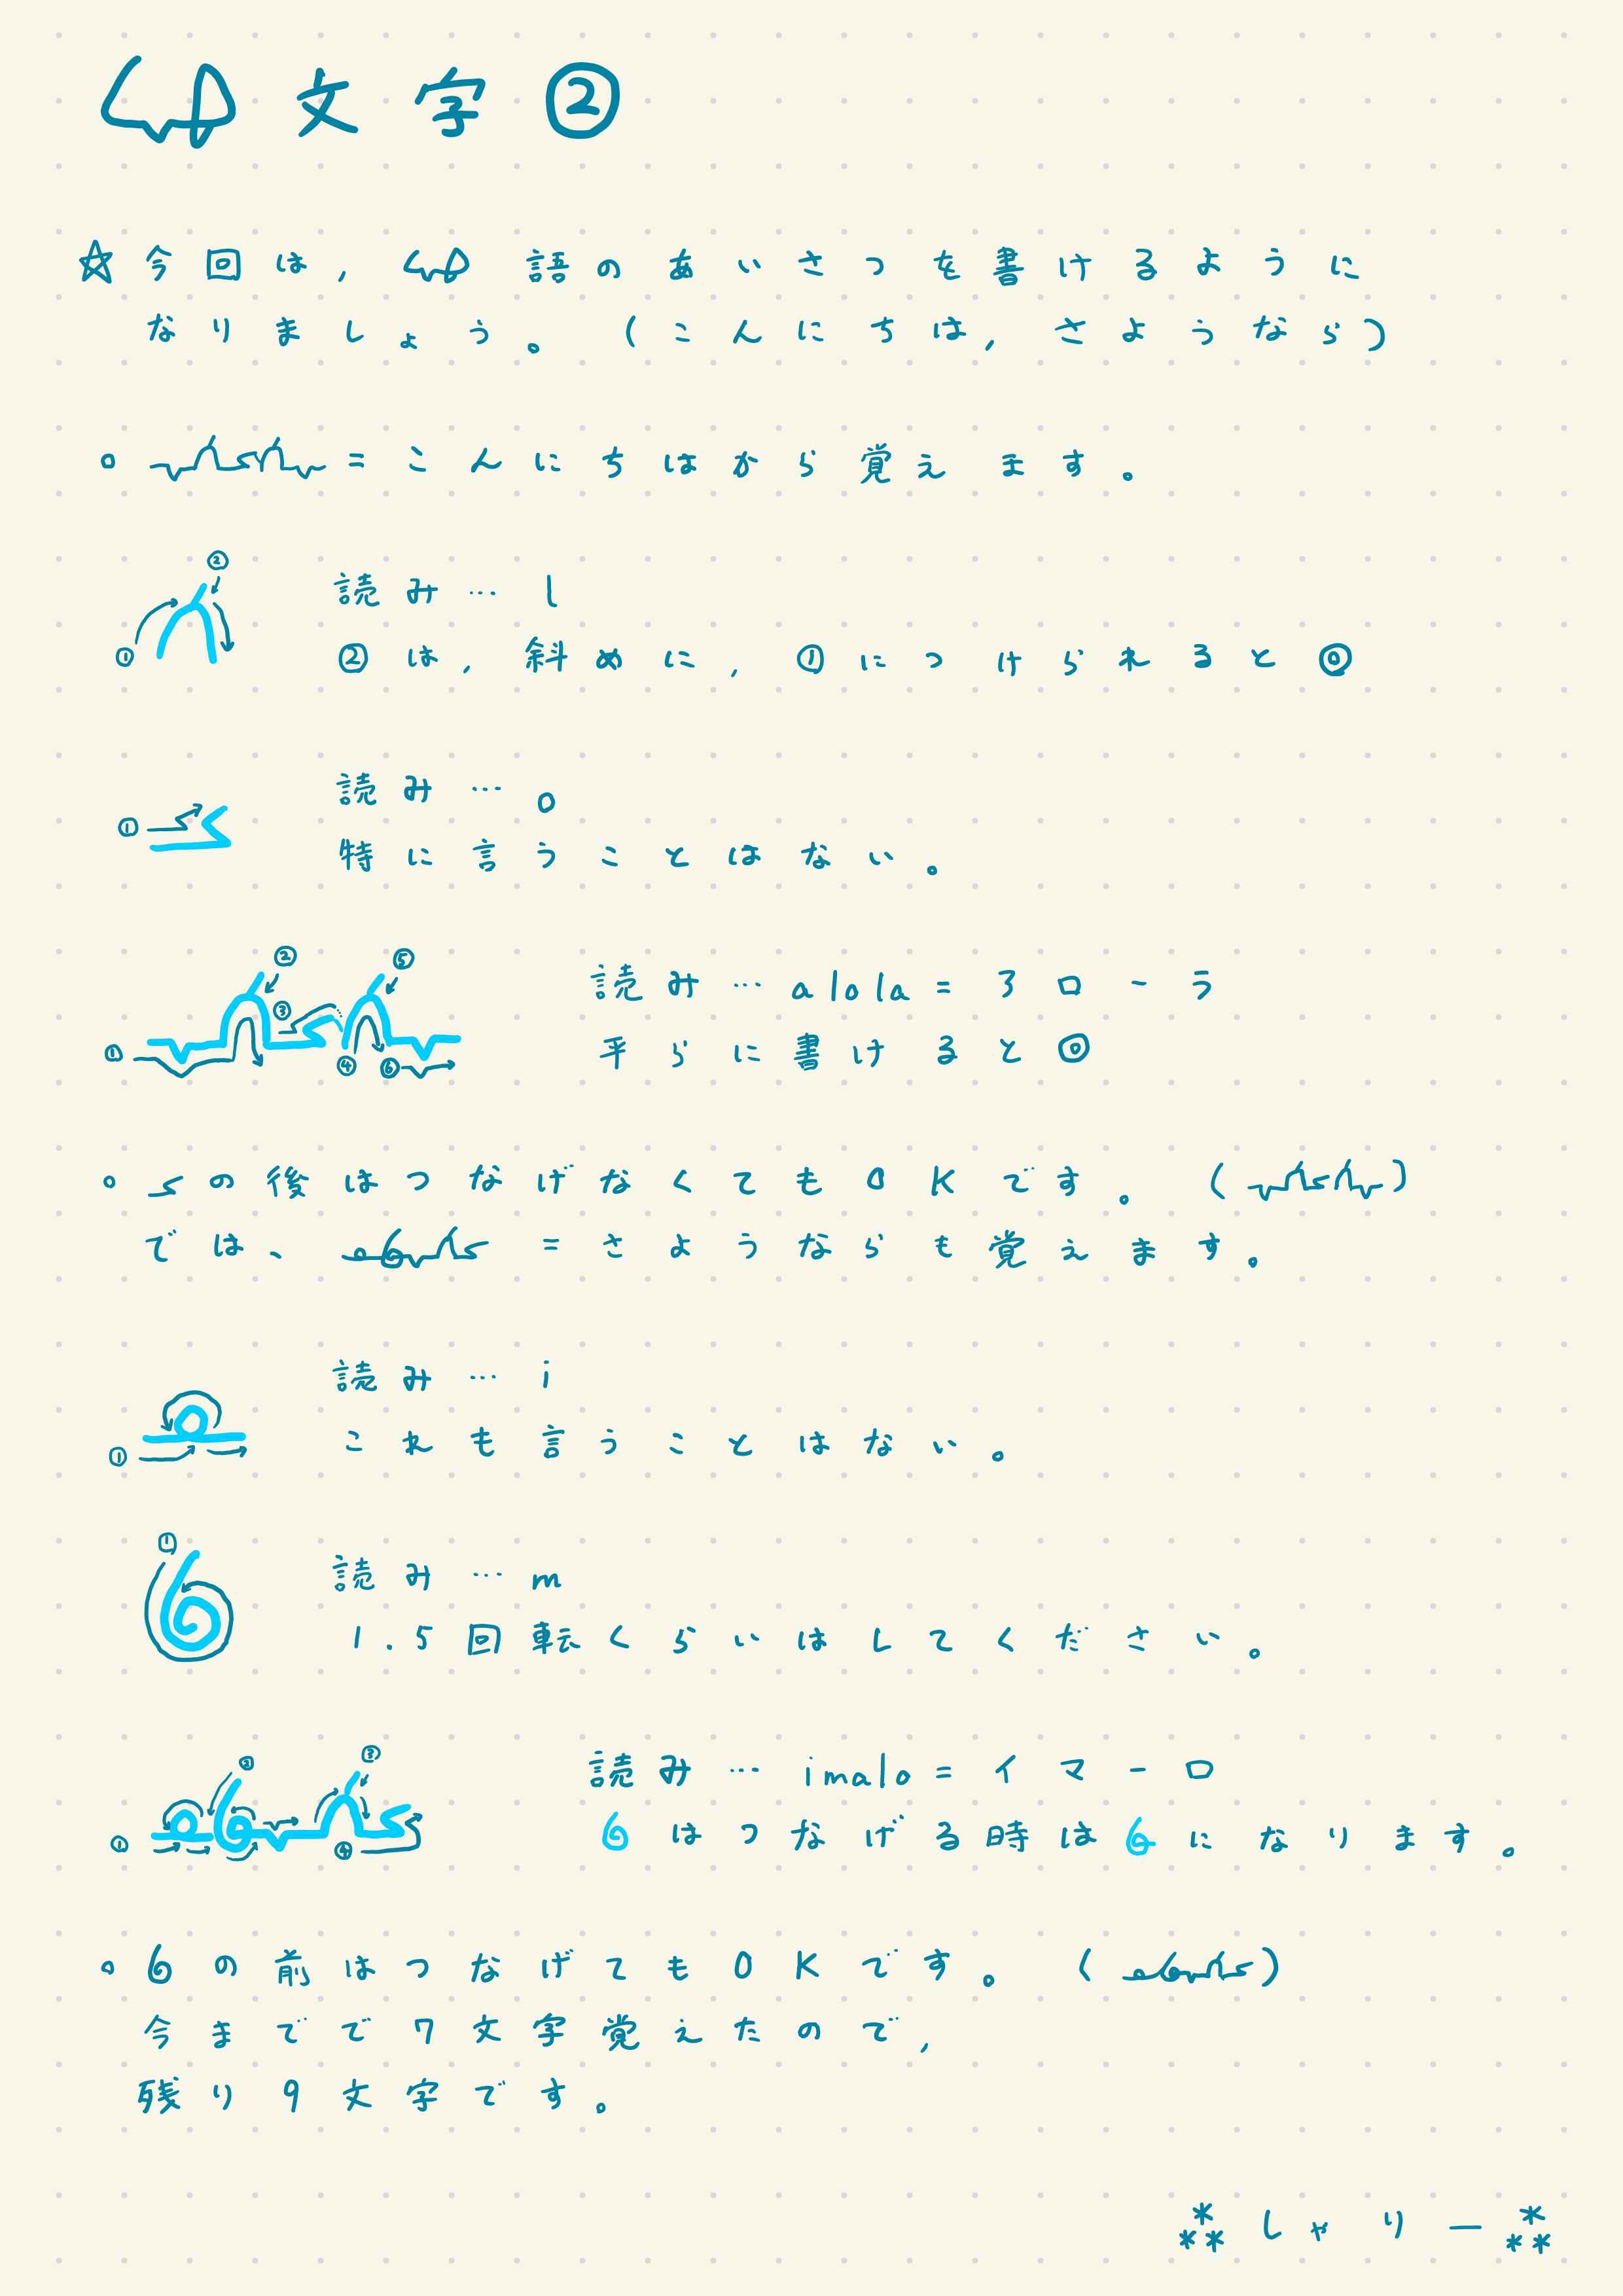 文字②
☆今回は,語のあいさつを書けるように
なりましょう。(こんにちは,さようなら)
=こんにちはから覚えます。
② ①
読み…l
②は,斜めに,①につけられると◎
読み…o
①
特に言うことはない。
② ⑤ ③ ① ④ ⑥
読み…alola=アローラ
平らに書けると◎
の後はつなげなくてもOKです。()
では、=さようならも覚えます。
読み…i
①
これも言うことはない。
①
読み…m
1.5回転くらいはしてください。
読み…imalo=イマーロ
はつなげる時はになります。
の前はつなげてもOKです。()
今までで7文字覚えたので,
残り9文字です。
⁂しゃりー⁂